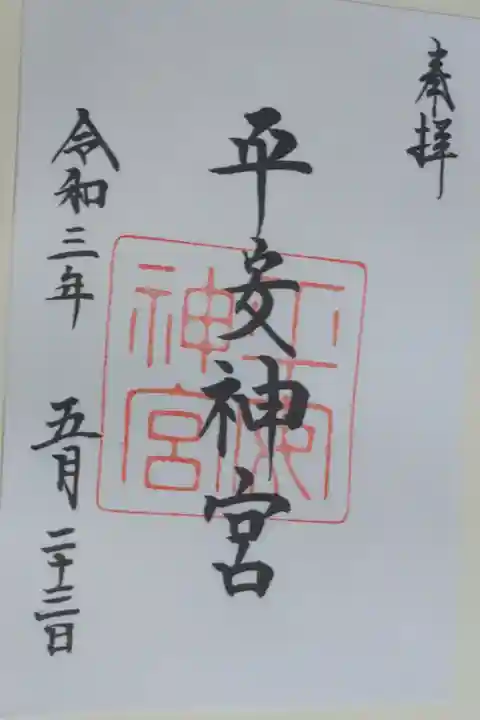 奉拝
平安神宮
平安神宮
令和三年 五月二十三日